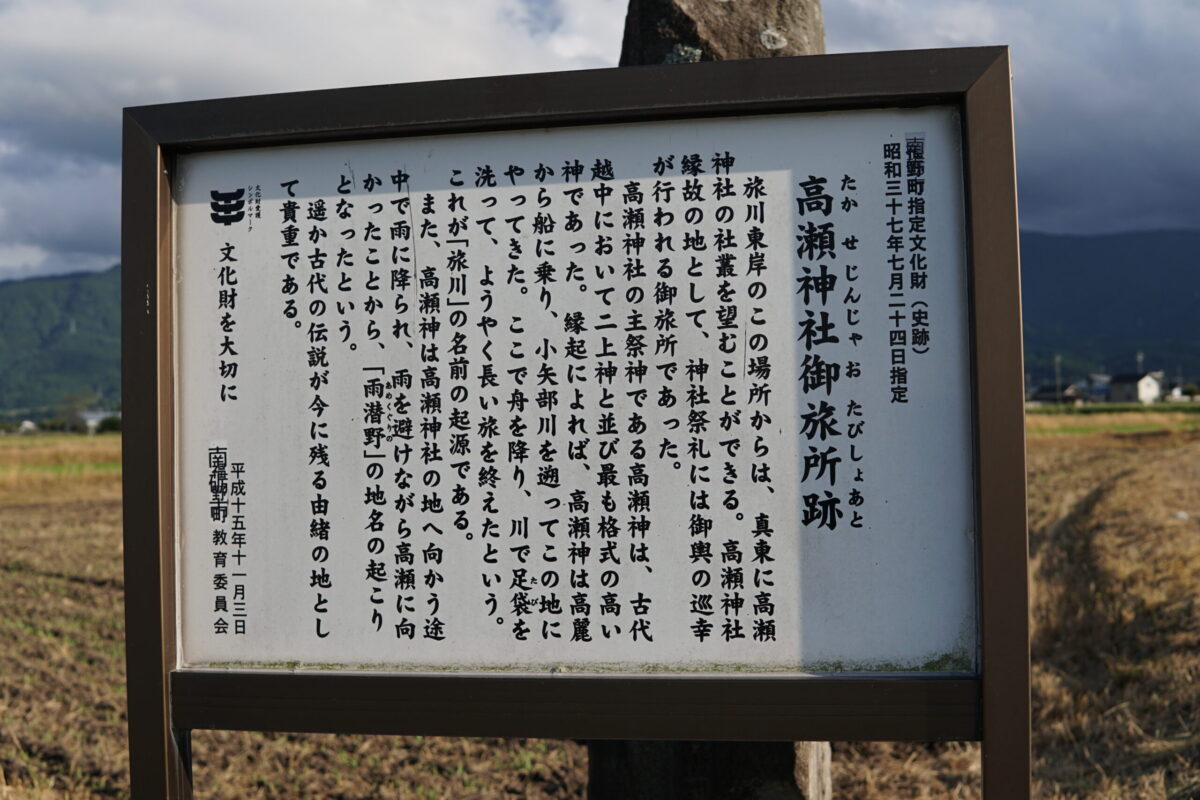 町指定文化財（史跡）
昭和三十七年七月二十四日指定
たか せ じんじゃ お たびしょあと
高瀬神社御旅所跡
旅川東岸のこの場所からは、真東に高瀬
神社の社叢を望むことができる。高瀬神社
縁故の地として、神社祭礼には御輿の巡幸
が行われる御旅所であった。
高瀬神社の主祭神である高瀬神は、古代
越中において二上神と並び最も格式の高い
神であった。縁起によれば、高瀬神は高麗
から船に乗り、小矢部川を遡ってこの地に
やってきた。ここで舟を降り、川で足袋を
たび
洗って、ようやく長い旅を終えたという。
これが「旅川」の名前の起源である。
また、高瀬神は高瀬神社の地へ向かう途
中で雨に降られ、雨を避けながら高瀬に向
かったことから、「雨潜野」の地名の起こり
あめくぐりの
となったという。
遥か古代の伝説が今に残る由緒の地とし
て貴重である。
文化財愛護
シンボルマーク
文化財を大切に
平成十五年十一月三日
教育委員会